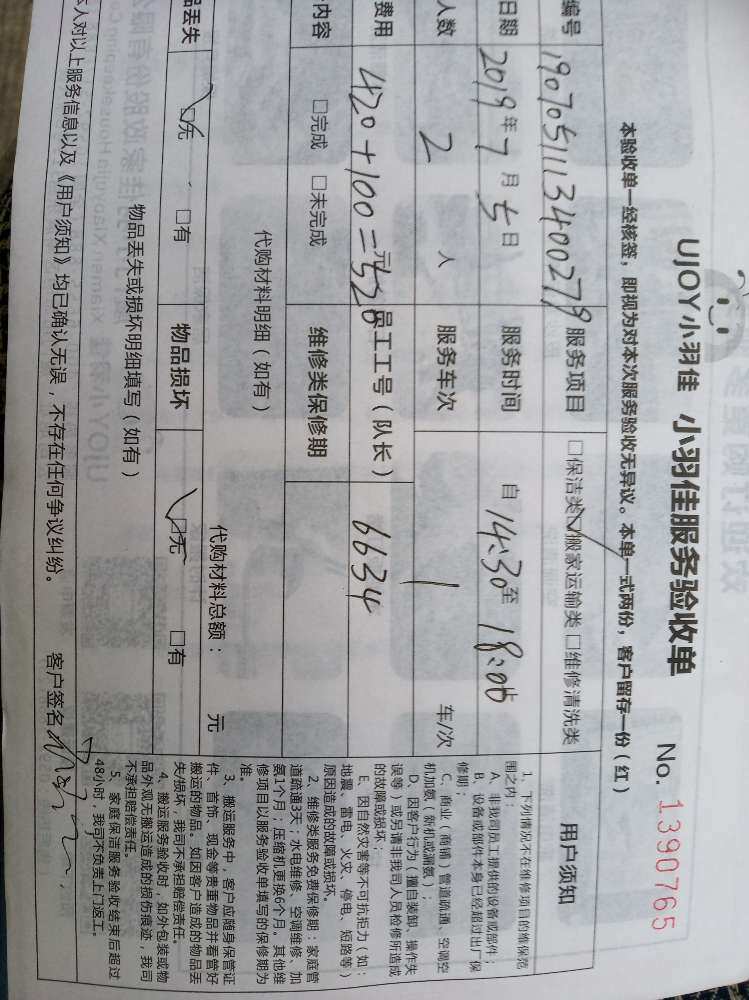 UJOY小羽佳 小羽佳服务验收单
No. 1390765
本验收单一经核签，即视为对本次服务验收无异议。本单一式两份，客户留存一份（红）
编号 1907051113400279 服务项目 □保洁类 ☑搬家运输类 □维修清洗类
日期 2019年7月5日 服务时间 自14:30至18:00
人数 2 人 服务车次 1 车/次
费用 420+100=520元 员工工号（队长） 6634
内容 □完成 □未完成 维修类保修期
代购材料明细（如有）
代购材料总额： 元
品丢失 ☑无 □有 物品损坏 ☑无 □有
物品丢失或损坏明细填写（如有）
本人对以上服务信息以及《用户须知》均已确认无误，不存在任何争议纠纷。 客户签名
用户须知
1、下列情况不在维修项目的维保范
围之内：
A、非我司员工提供的设备或部件；
B、设备或部件本身已经超过出厂保
修期；
C、商业（商铺）管道疏通、空调空
机加氨（新机或漏氨）；
D、因客户行为（擅自装卸、操作失
误等）或另请非我司人员检修所造成
的故障或损坏；
E、因自然灾害等不可抗拒力（如：
地震、雷电、火灾、停电、短路等）
原因造成的故障或损坏。
2、维修类服务免费保修期：家庭管
道疏通3天；水电维修、空调维修、加
氨1个月；压缩机更换6个月。其他维
修项目以服务验收单填写的保修期为
准。
3、搬运服务中，客户应随身保管证
件、首饰、现金等贵重物品并看管好
搬运的物品。如因客户造成的物品丢
失/损坏，我司不承担赔偿责任。
4、搬运服务验收时，如外包装或物
品外观无搬运造成的损伤痕迹，我司
不承担赔偿责任。
5、家庭保洁服务验收结束后超过
48小时，我司不负责上门返工。